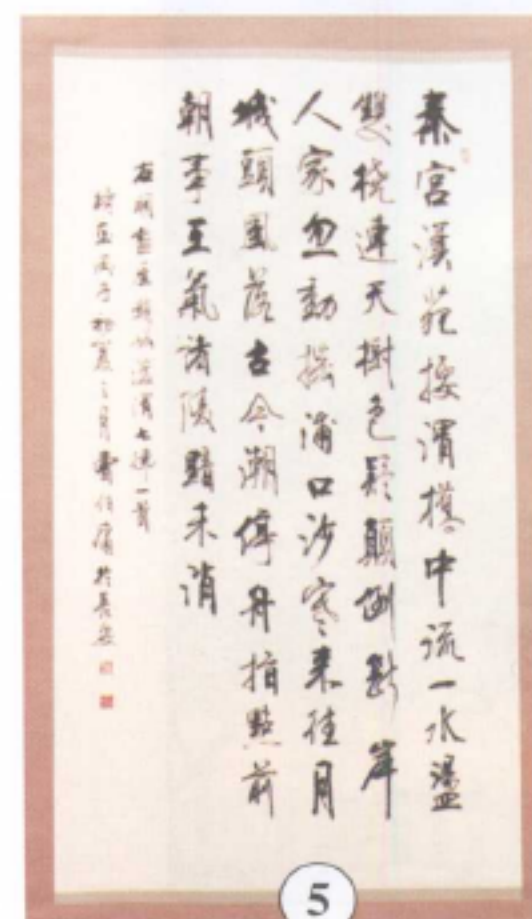 秦宮漢苑接渭橋中流一水盪
雙橈連天樹色疑顛倒斷岸
人家忽動搖浦口沙寒來往月
城頭風落古今潮停舟指點前
朝事王氣諸陵黯未消
右明泛渭七律一首
時在丙子初夏之月曹伯庸於長安
5